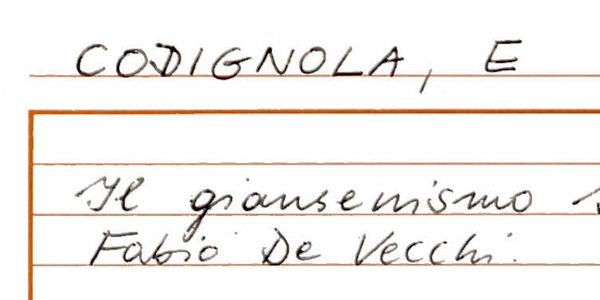 CODIGNOLA, E
Il giansenismo
Fabio De Vecchi.